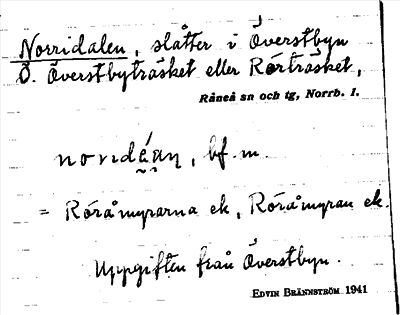 Norridalen, slåtter i Överstbyn
Ö. Överstbyträsket eller Rörträsket,
Råneå sn och tg, Norrb. l.
noridéan, bf. m.
= Röråmyrarna ek, Röråmyran ek.
Uppgiften från Överstbyn.
EDVIN BRÄNNSTRÖM 1941